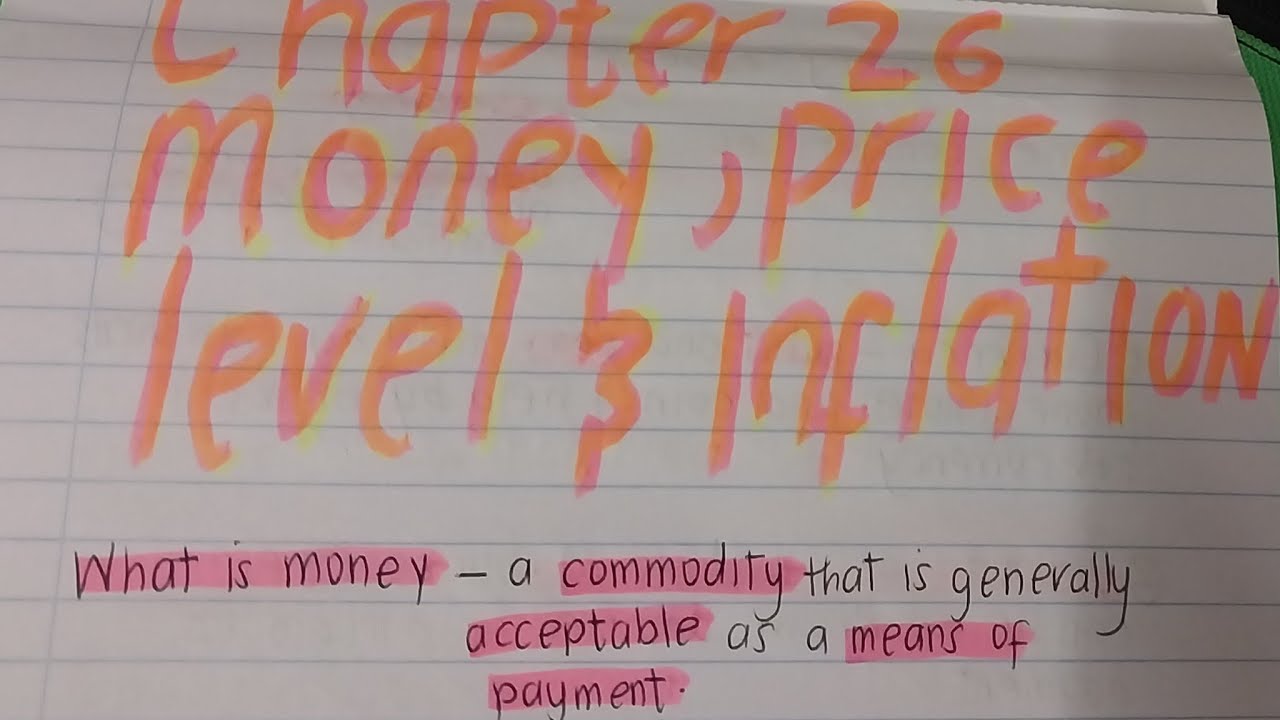 Chapter 26
Money, price
level & Inflation
What is money - a commodity that is generally
acceptable as a means of
payment.